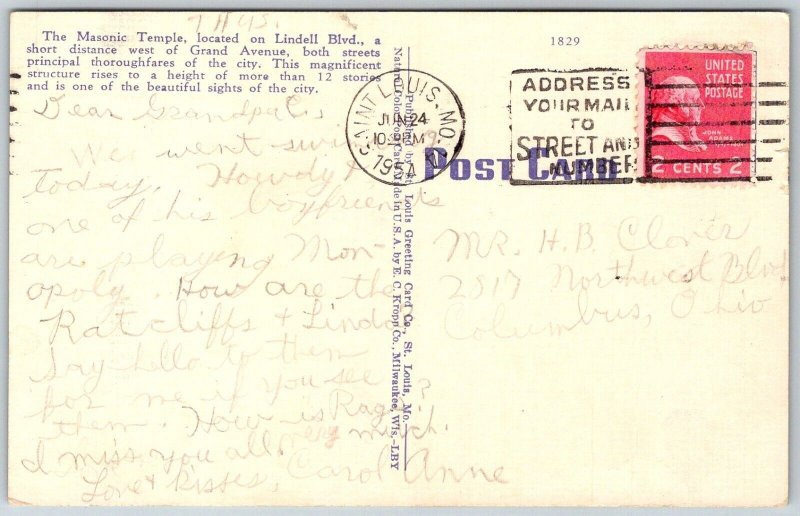 Thurs.
The Masonic Temple, located on Lindell Blvd., a
short distance west of Grand Avenue, both streets
principal thoroughfares of the city. This magnificent
structure rises to a height of more than 12 stories
and is one of the beautiful sights of the city.
Dear Grandpa,
We went swimming
today. Howdy &
one of his boyfriends
are playing Mon-
opoly. How are the
Ratcliffs & Linda
Say hello to them
for me if you see
them. How is Rags?
I miss you all very much.
Love & Kisses,
Carol Anne
Published by St. Louis Greeting Card Co., St. Louis, Mo.
Natural Color Post Card Made in U.S.A. by E. C. Kropp Co., Milwaukee, Wis.—LBY
1829
POST CARD
SAINT LOUIS, MO.
JUN 24
10 PM
1954
ADDRESS
YOUR MAIL
TO
STREET AND
NUMBER
UNITED
STATES
POSTAGE
JOHN
ADAMS
2 CENTS 2
MR. H.B. Clover
2817 Northwest Blvd
Columbus, Ohio